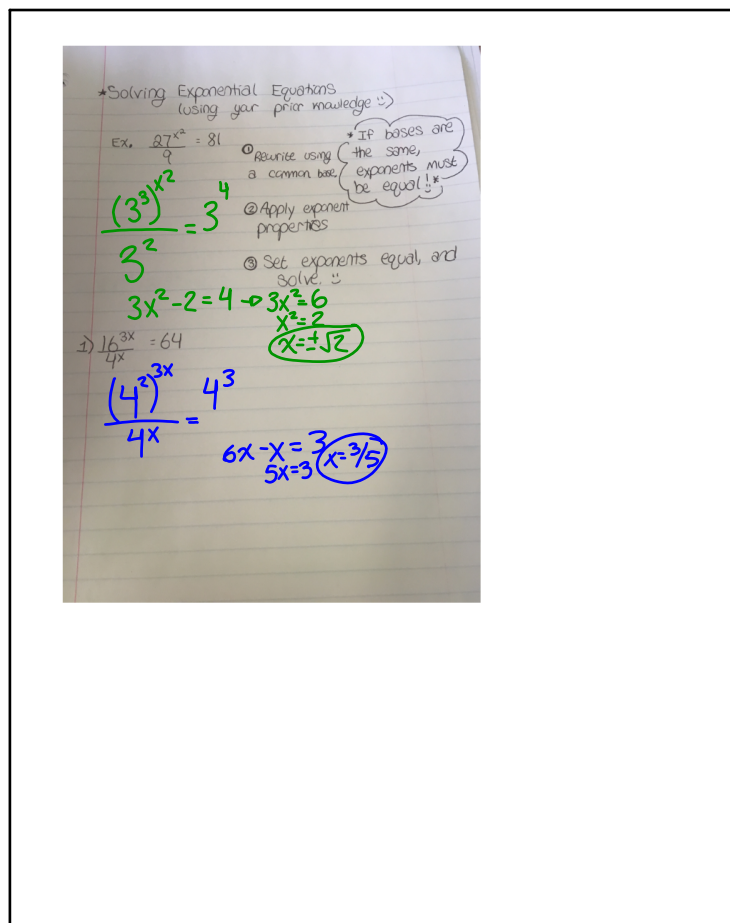 *Solving Exponential Equations
(using your prior knowledge :))
Ex. 27^x^2 / 9 = 81
① Rewrite using
a common base
* If bases are
the same,
exponents must
be equal! *
(3^3)^x^2 / 3^2 = 3^4
② Apply exponent
properties
③ Set exponents equal, and
solve. :)
3x^2 - 2 = 4 → 3x^2 = 6
x^2 = 2
x = ±√2
1) 16^3x / 4^x = 64
(4^2)^3x / 4^x = 4^3
6x - x = 3
5x = 3
x = 3/5